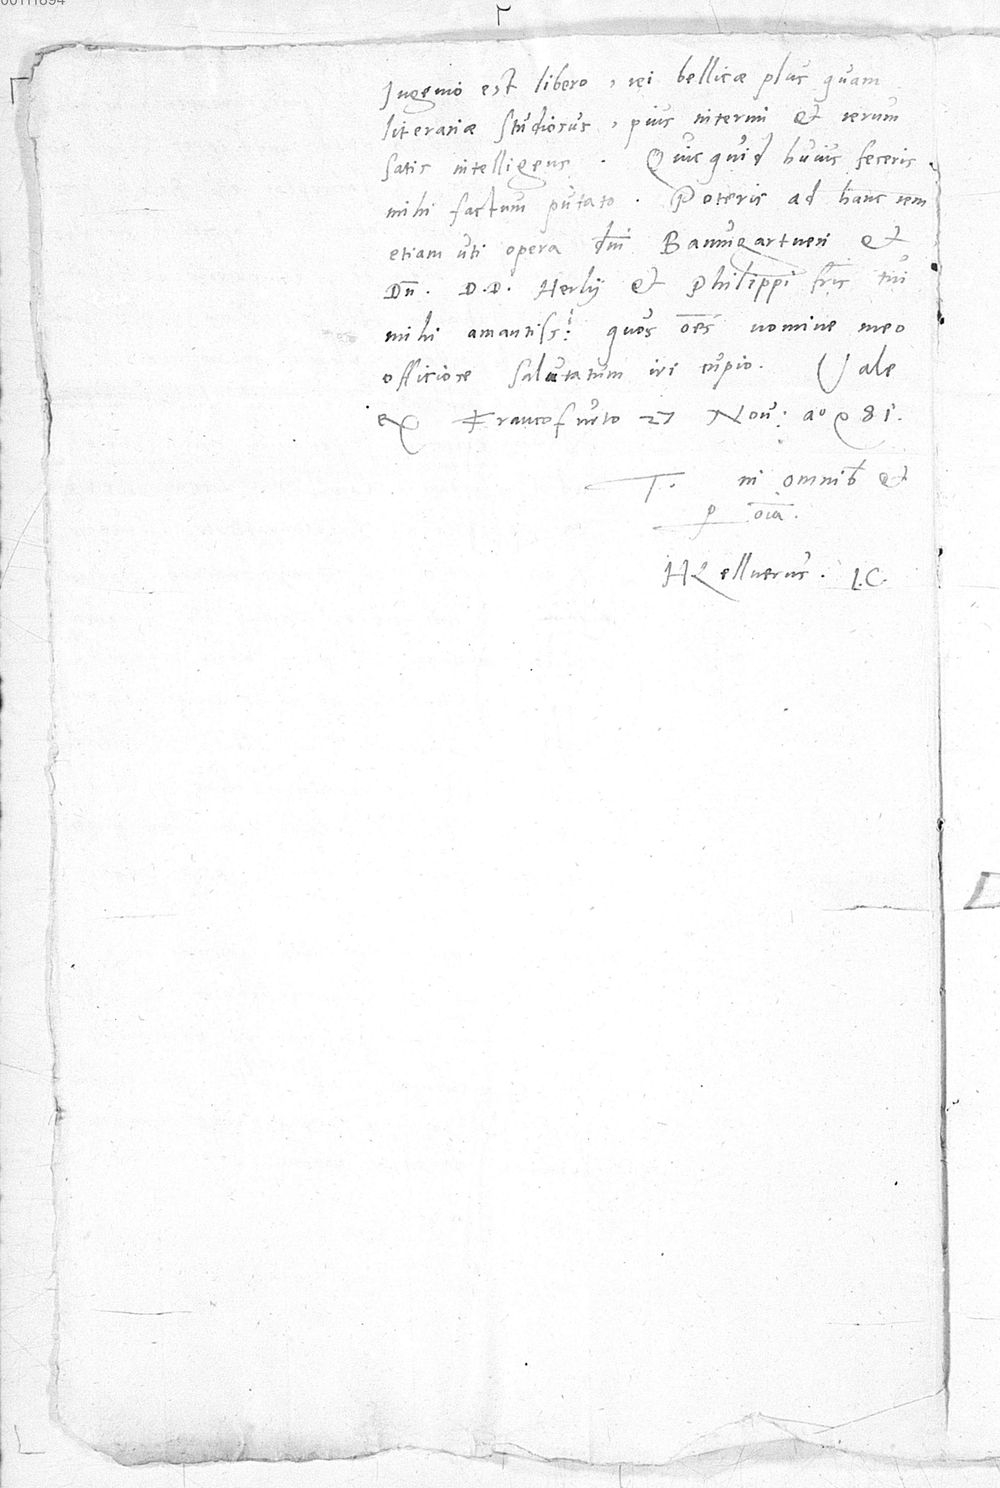 00111894
Ingenio est libero, rei bellicæ plus quam
literariæ studiosus, pius interim et rerum
satis intelligens. Quicquid huius feceris
mihi factum putato. Poteris ad hanc rem
etiam uti opera dni Baumgartneri et
Dn. D.D. Herlij et Philippi fris tui
mihi amantiss: quos oes nomine meo
officiose salutatum iri cupio. Vale
ex Francofurto 27 Nou: ao 81.
T. in omnib et
p oia.
HKellnerus. I.C.